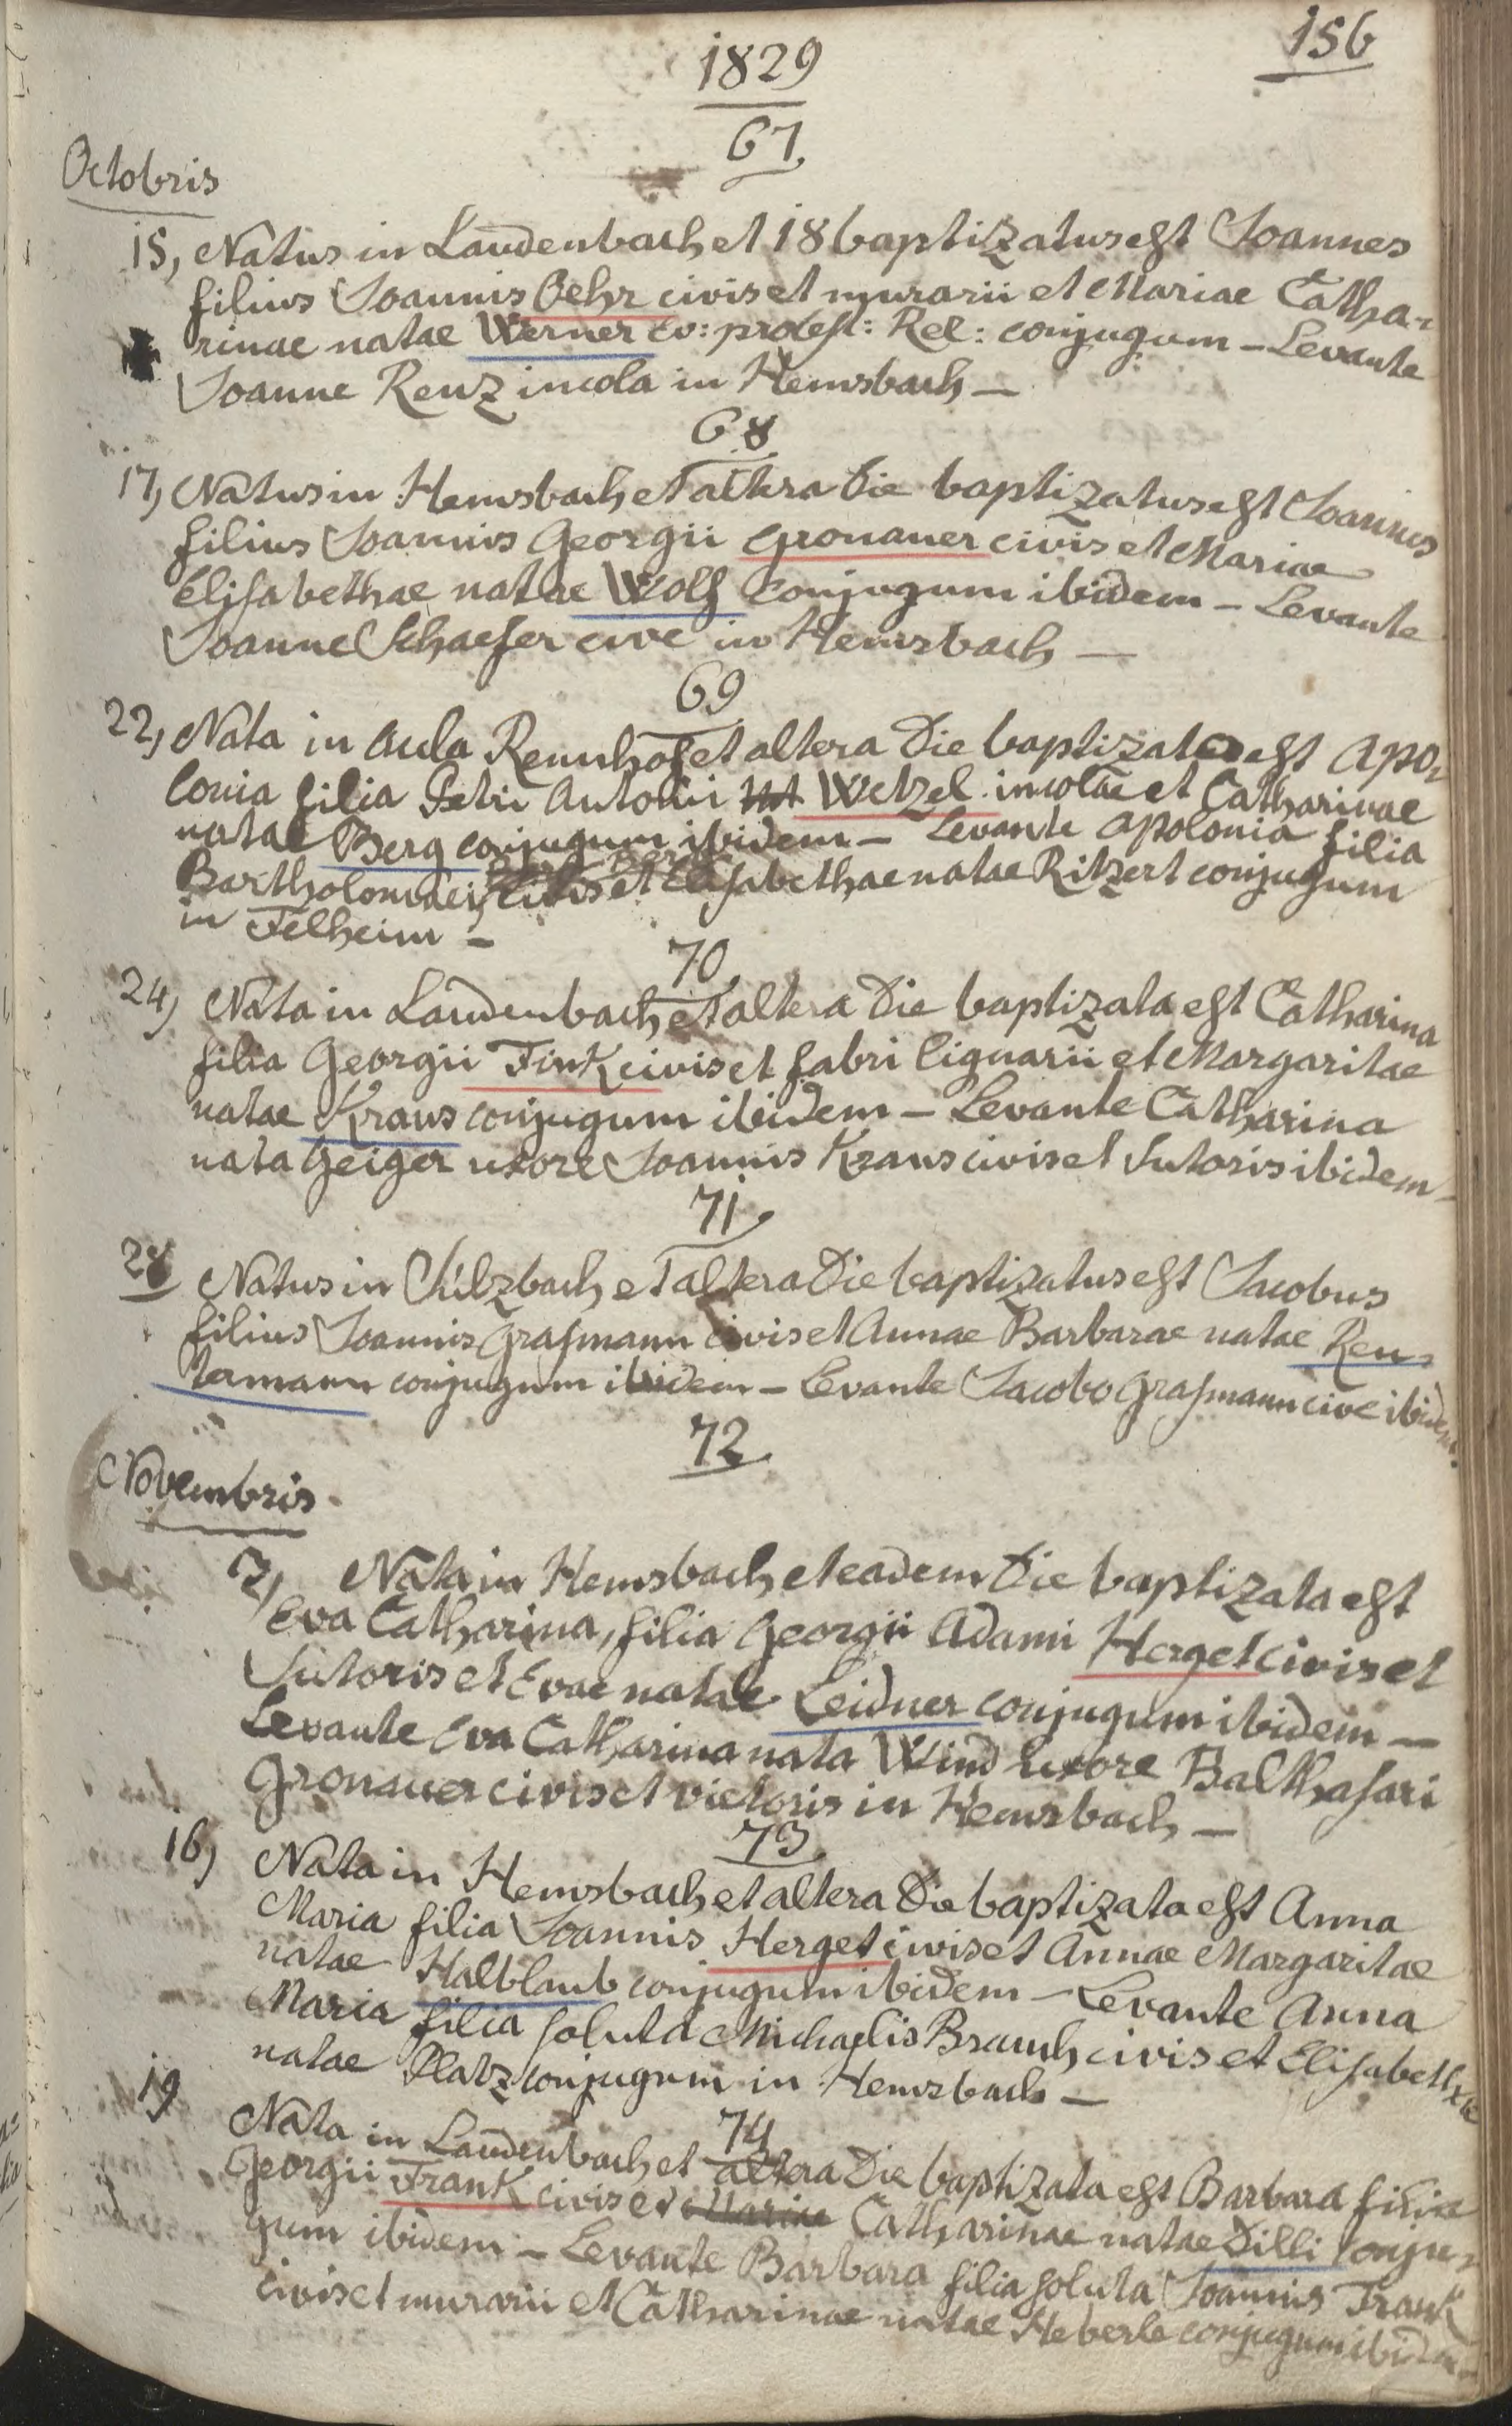 156
1829
67
Octobris
15, Natus in Laudenbach et 18 baptizatus est Joannes
filius Joannis Oehr civis et murarii et Mariae Catha-
rinae natae Werner Ev: protest: Rel: conjugum – Levante
Joanne Renz incola in Hemsbach –
68
17, Natus in Hemsbach et altera Die baptizatus est Joannes
filius Joannis Georgii Gronauer civis et Mariae
Elisabethae natae Wolf conjugum ibidem – Levante
Joanne Schaefer cive in Hemsbach –
69
22, Nata in aula Rennhof et altera Die baptizata est Apo-
lonia filia Petri Antonii Wetzel incolae et Catharinae
natae Berg conjugum ibidem – Levante Apolonia filia
Bartholomaei Berg civis et Elisabethae natae Ritzert conjugum
in Felheim –
70
24, Nata in Laudenbach et altera Die baptizata est Catharina
filia Georgii Fink civis et fabri lignarii et Margaritae
natae Kraus conjugum ibidem – Levante Catharina
nata Geiger uxore Joannis Kraus civis et Sutoris ibidem –
71
28 Natus in Sulzbach et altera Die baptizatus est Jacobus
filius Joannis Grasmann civis et Annae Barbarae natae Reu-
termann conjugum ibidem – Levante Jacobo Grasmann cive ibidem.
72
Novembris
7, Nata in Hemsbach et eadem Die baptizata est
Eva Catharina, filia Georgii Adami Herget civis et
Sutoris et Evae natae Leidner conjugum ibidem –
Levante Eva Catharina nata Wind uxore Balthasari
Gronauer civis et victoris in Hemsbach –
73
16, Nata in Hemsbach et altera Die baptizata est Anna
Maria filia Joannis Herget civis et Annae Margaritae
natae Halblaub conjugum ibidem – Levante Anna
Maria filia soluta Michaelis Brauch civis et Elisabethae
natae Platz conjugum in Hemsbach –
74
19 Nata in Laudenbach et altera Die baptizata est Barbara filia
Georgii Frank civis et Mariae Catharinae natae Dilli conju-
gum ibidem – Levante Barbara filia soluta Joannis Frank
civis et murarii et Catharinae natae Heberle conjugum ibidem –